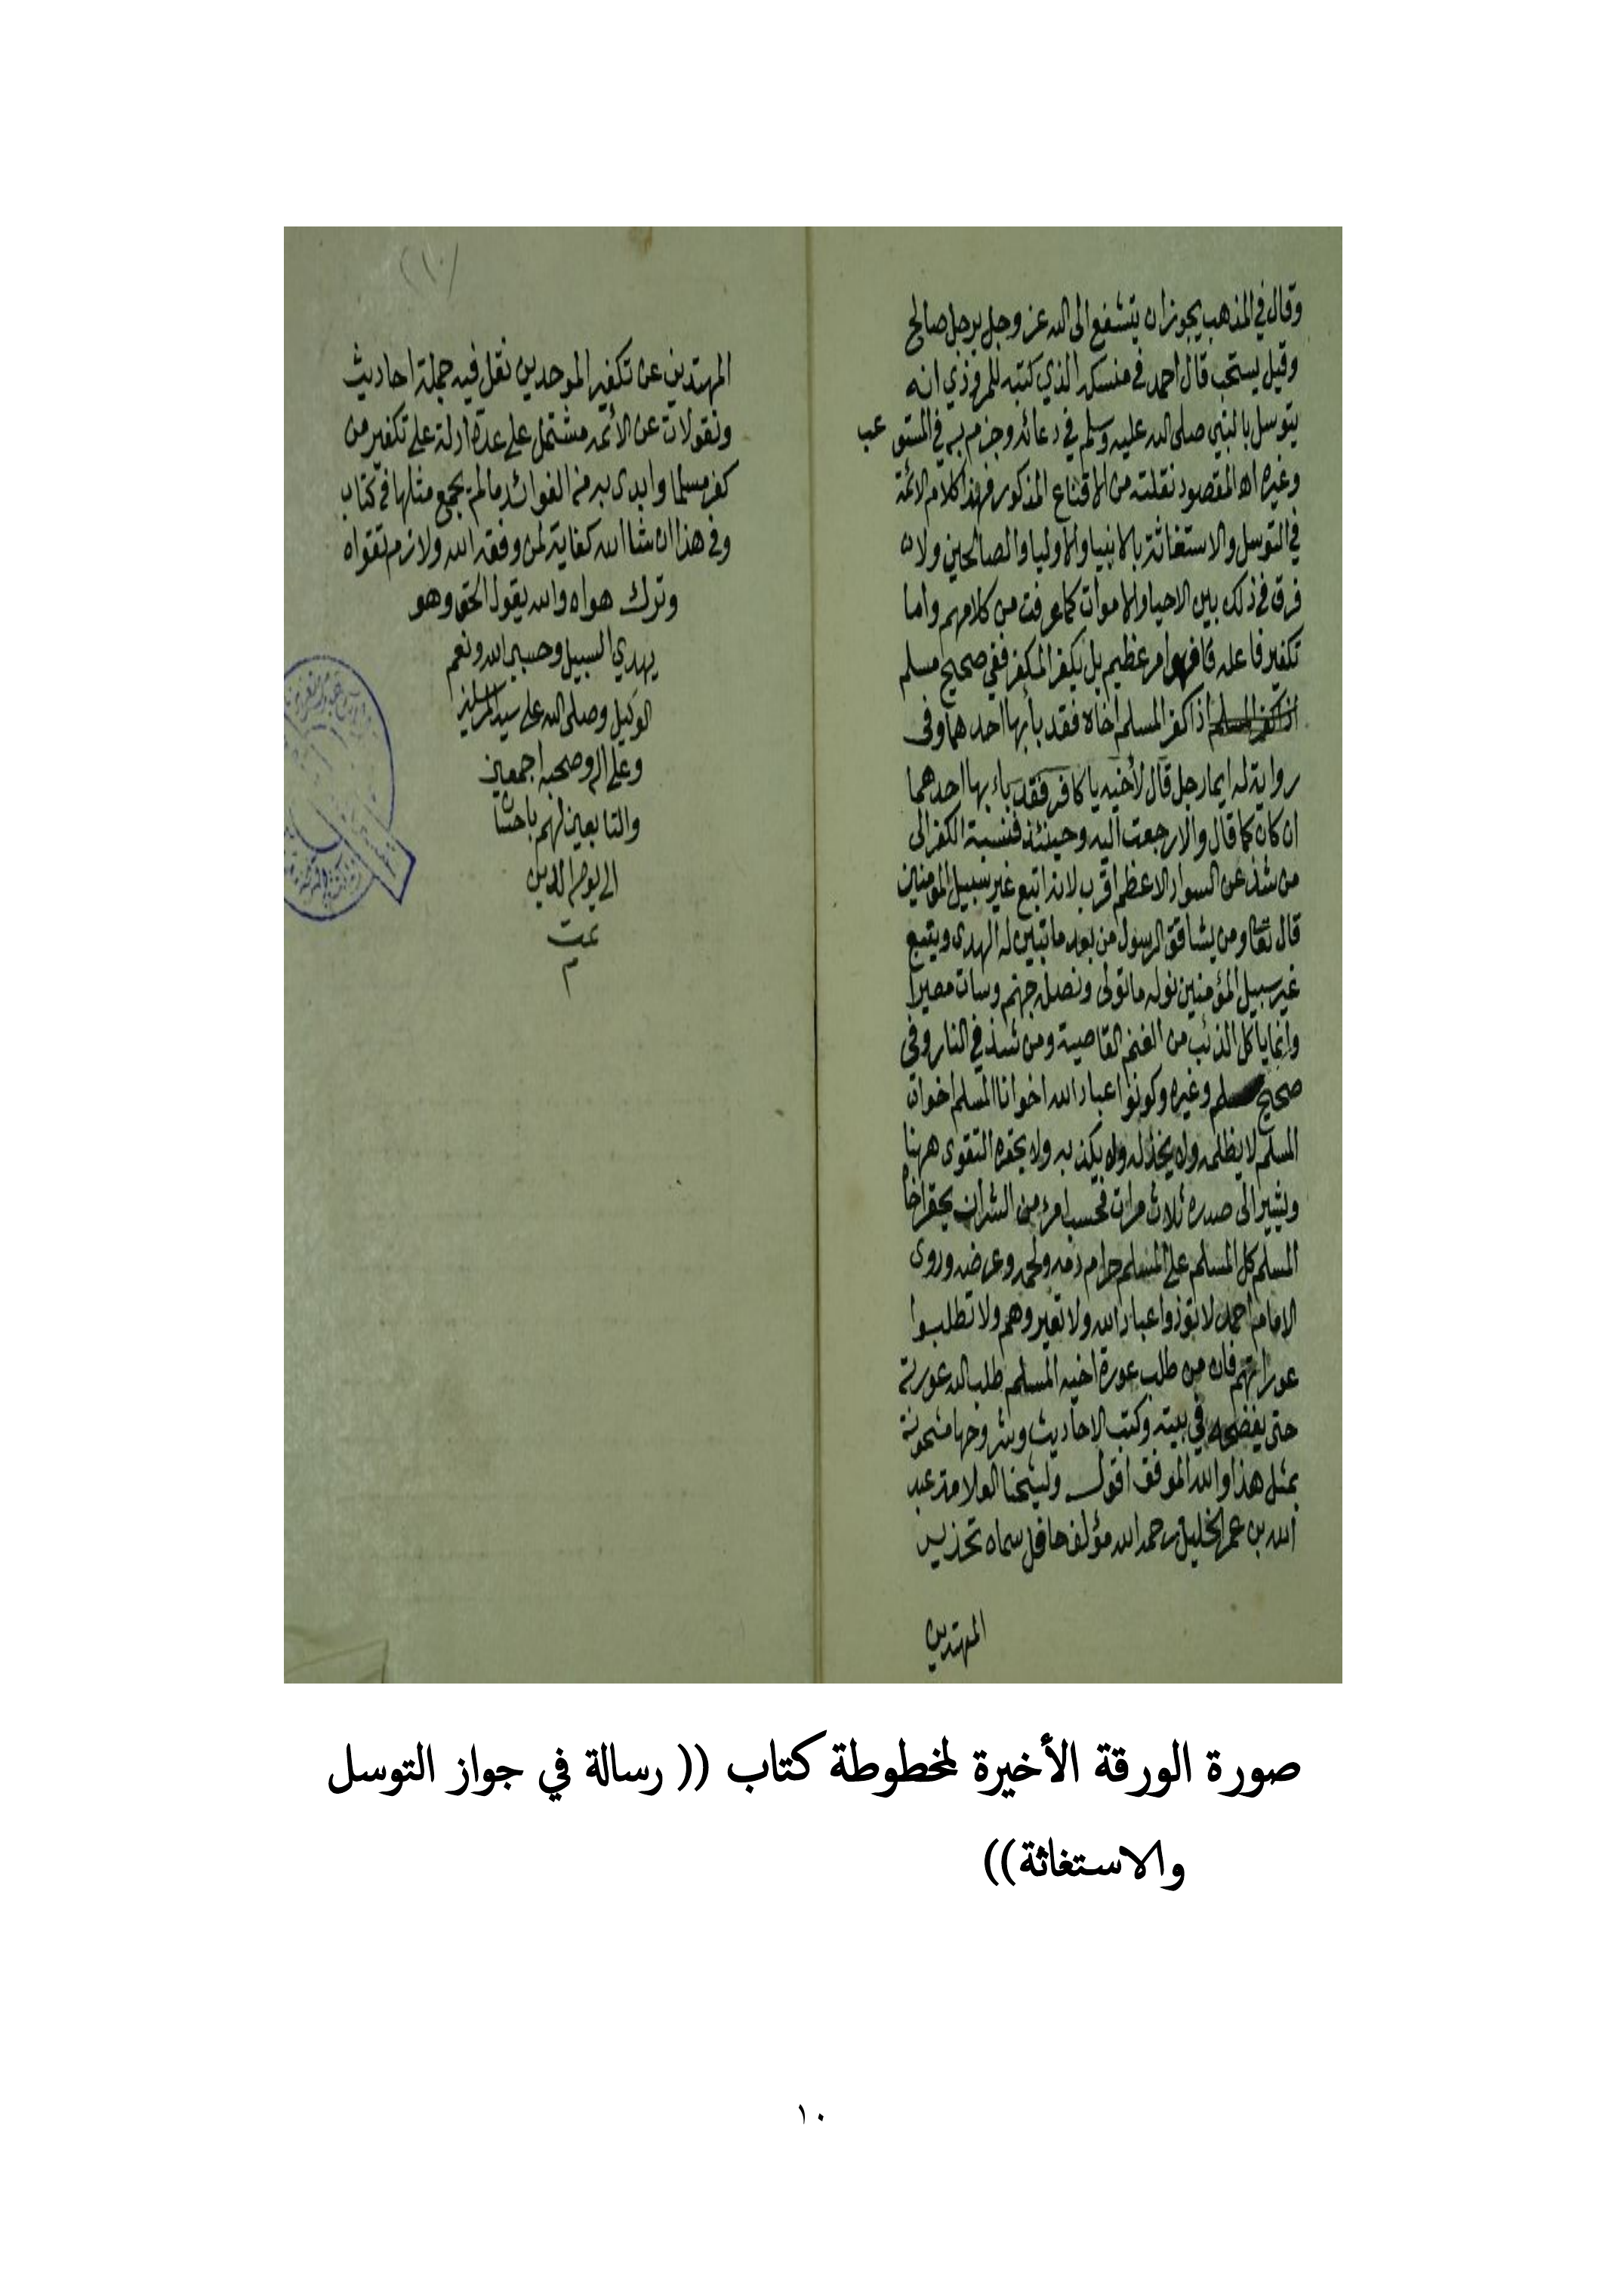 وقال في المذهب يجوز ان يتشفع الى الله عز وجل برجل صالح
وقيل يستحب قال احمد في منسكه الذي كتبه للمروذي انه
يتوسل بالنبي صلى الله عليه وسلم في دعائه وجزم به في المستوعب
وغيره اه المقصود نقلته من الاقناع المذكور فهذا كلام الائمة
في التوسل والاستغاثة بالانبيا والاوليا والصالحين ولان
فرق في ذلك بين الاحيا والاموات كما عرفت من كلامهم واما
تكفير فاعله فهو امر عظيم بل يكفر المكفر ففي صحيح مسلم
اذا كفر المسلم اخاه فقد باء بها احدهما وفي
رواية له ايما رجل قال لأخيه يا كافر فقد باء بها احدهما
ان كان كما قال والا رجعت اليه وحينئذ فنسبة الكفر الى
من شذ عن السواد الاعظم اقرب لانه اتبع غير سبيل المؤمنين
قال تعا ومن يشاقق الرسول من بعد ما تبين له الهدى ويتبع
غير سبيل المؤمنين نوله ما تولى ونصله جهنم وسات مصيرا
وانما ياكل الذئب من الغنم القاصية ومن شذ شذ في النار وفي
صحيح مسلم وغيره وكونوا عباد الله اخوانا المسلم اخوان
المسلم لا يظلمه ولا يخذله ولا يكذبه ولا يحقره التقوى ههنا
ويشير الى صدره ثلاث مرات بحسب امرؤ من الشر ان يحقر اخاه
المسلم كل المسلم على المسلم حرام دمه ولحمه وعرضه وروى
الامام احمد لا تؤذوا عباد الله ولا تعيروهم ولا تطلبوا
عوراتهم فان من طلب عورة اخيه المسلم طلب الله عورته
حتى يفضحه في بيته وكتب الاحاديث وشروحها مشحونة
بمثل هذا والله الموفق اقول ولشيخنا العلامة عبد
الله بن عمر الخليل رحمه الله مؤلف حافل سماه تحذير
المهتدين
(١٠)
المهتدين عن تكفير الموحدين نقل فيه جملة احاديث
ونقولات عن الأئمه مشتمل على عدة ادلة على تكفير من
كفر مسلما وابدى به من الفوائد ما لم يجمع مثلها في كتاب
وفي هذا ان شا الله كفاية لمن وفقه الله ولازم تقواه
وترك هواه والله يقول الحق وهو
يهدي السبيل وحسبي الله ونعم
الوكيل وصلى الله على سيد المرسلين
وعلى اله وصحبه اجمعين
والتابعين لهم باحسان
الى يوم الدين
تمت
م
صورة الورقة الأخيرة لمخطوطة كتاب (( رسالة في جواز التوسل
والاستغاثة))
١٠